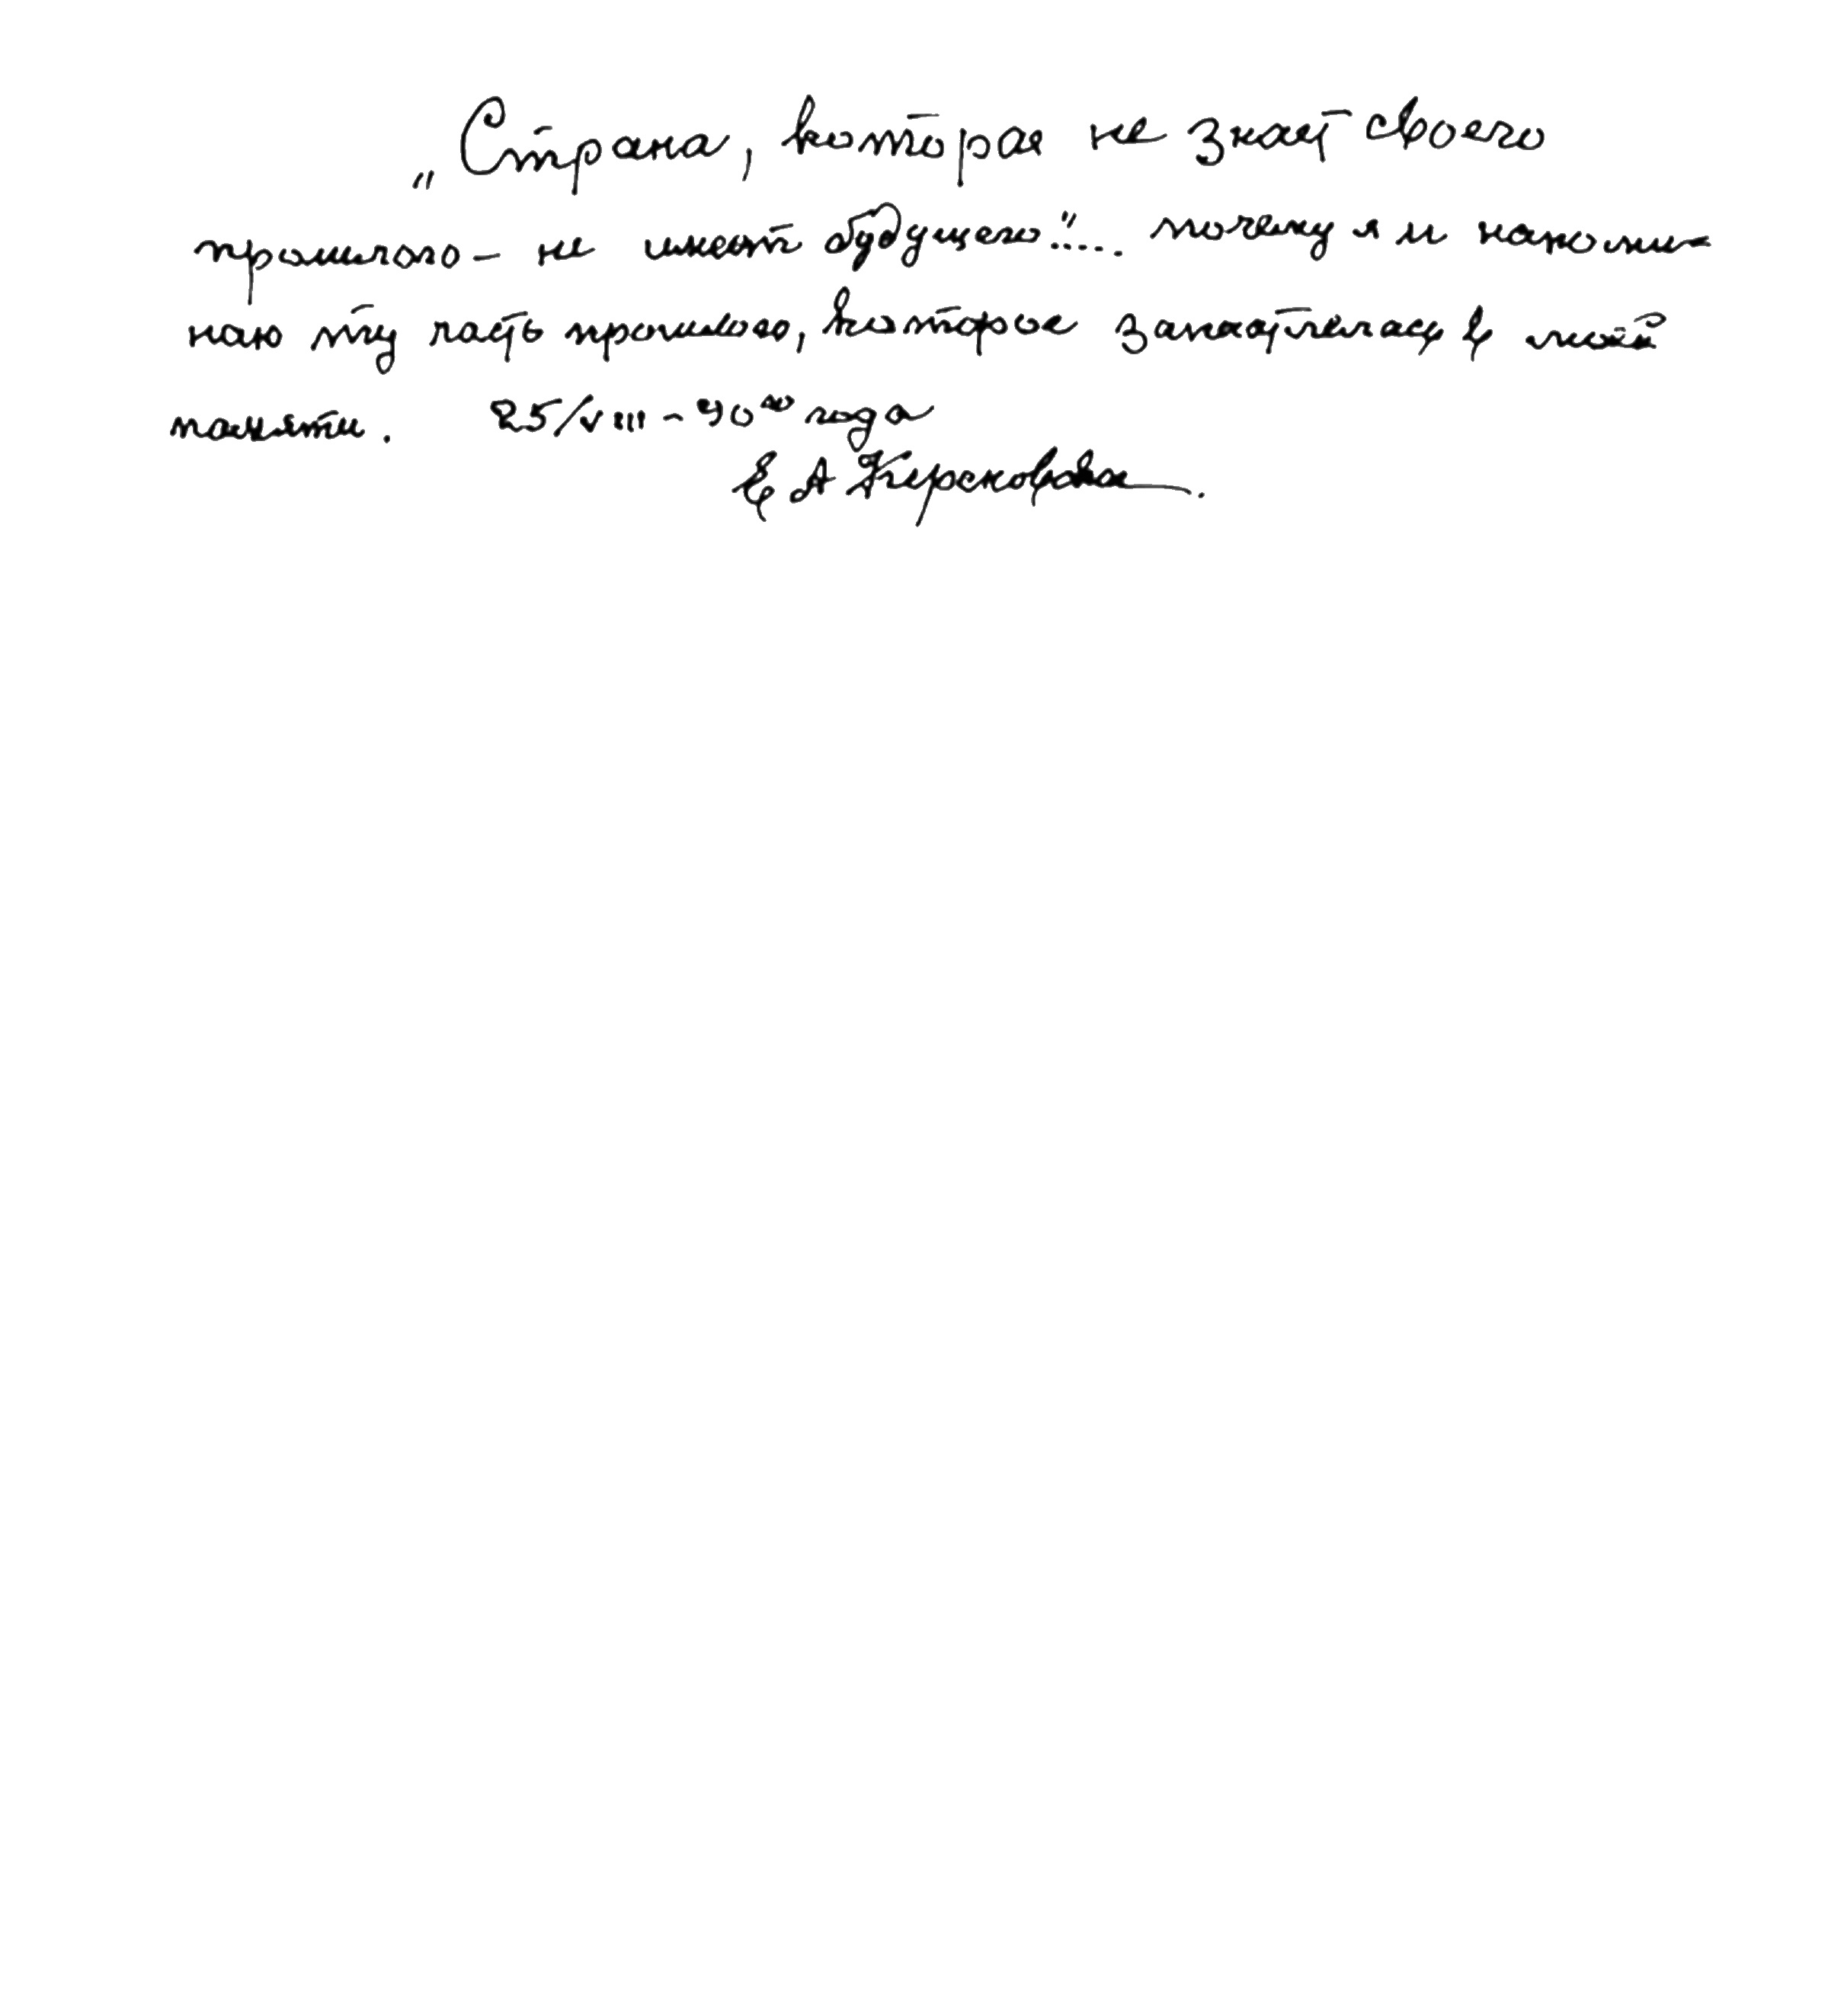 „Страна, которая не знает своего
прошлого – не имеет будущего"... почему я и напоми-
наю ту часть прошлого, которое запечатлелась в моей
памяти. 25/VIII – 90го года
Е А Керсновская.